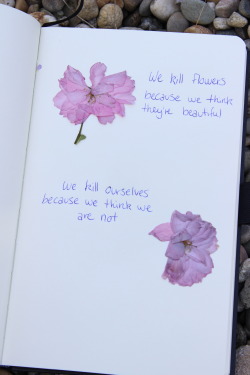 We kill flowers
because we think
they're beautiful
We kill ourselves
because we think we
are not